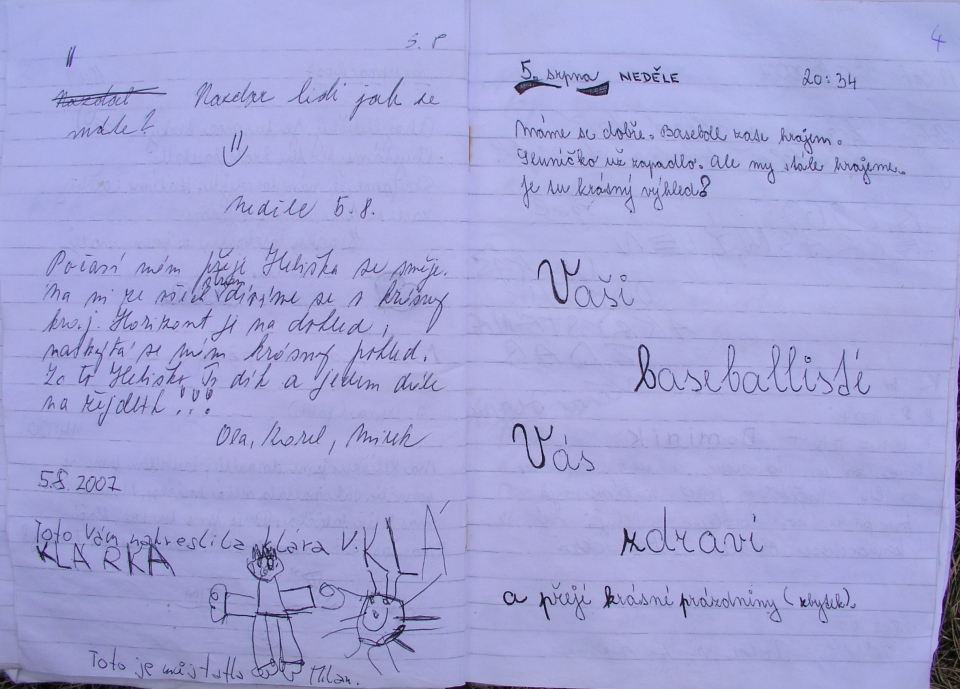 5. 8
Nazdar lidi jak se
máte?
neděle 5.8.
Počasí nám přeje Heliška se směje.
na ni ze všech stran díváme se s krásný
kraj. Horizont je na dohled,
naskýtá se nám krásný pohled.
Za to Heliško Ti dík a jedem dále
na
Ola, Karel, Mirek
5.8.2007
Toto Vám nakreslila Klára V. KLÁ
KLÁRKA
Toto je můj taťka Milan.
4
5. srpna NEDĚLE 20:34
Máme se dobře. Baseball zase hrajem.
Sluníčko už zapadlo. Ale my stále hrajeme.
Je tu krásný výhled?
Vaši
baseballisté
Vás
zdraví
a přejí krásné prázdniny (zbytek).